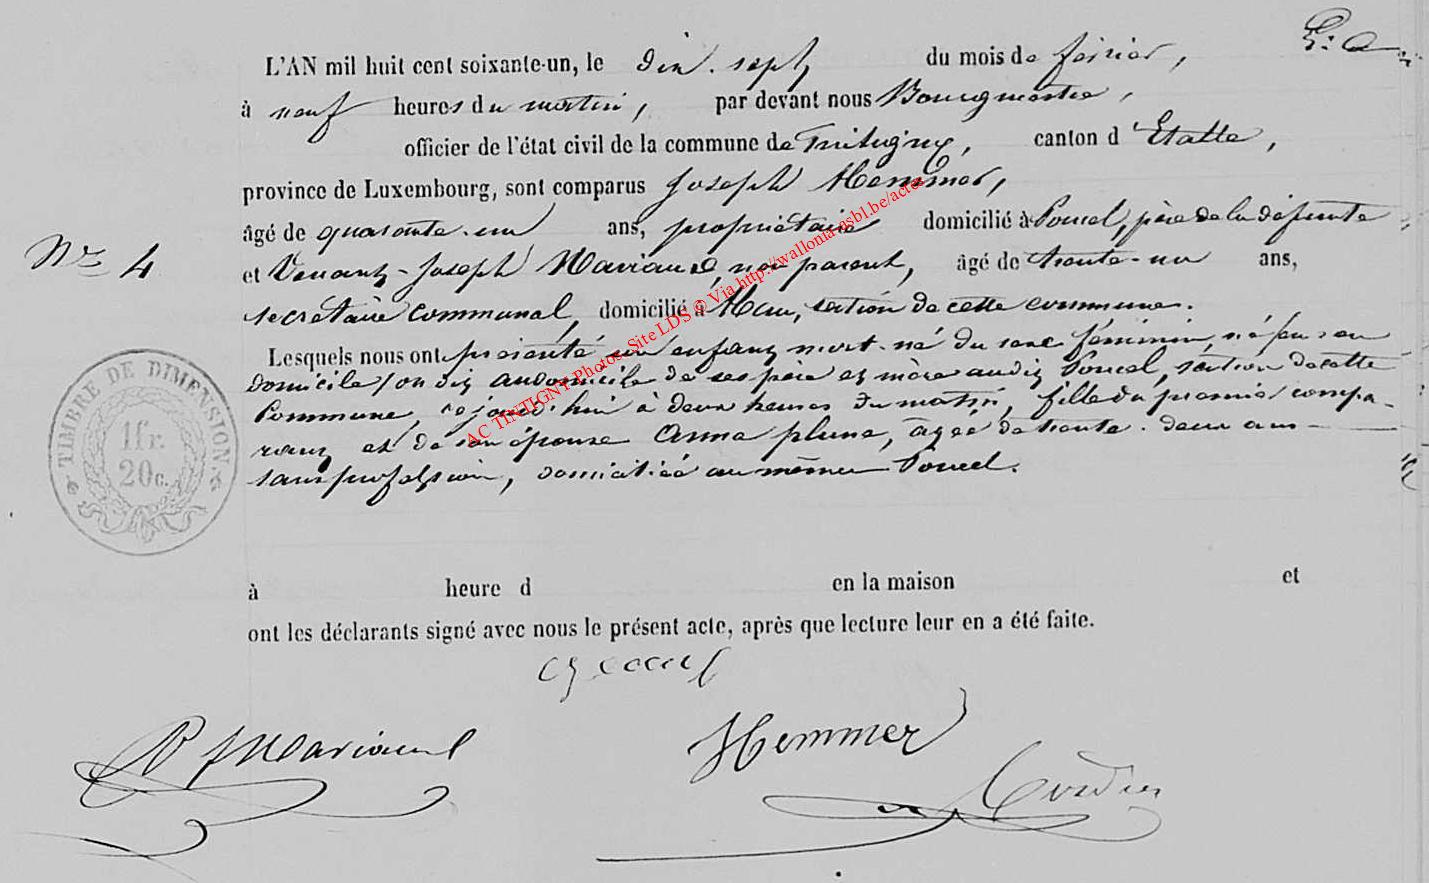 L'AN mil huit cent soixante-un, le dix-sept du mois de février,
à neuf heures du matin, par devant nous Bourgmestre,
officier de l'état civil de la commune de Tintigny, canton d'Etalle,
province de Luxembourg, sont comparus Joseph Hemmer,
âgé de quarante-un ans, propriétaire domicilié à Poncel, père de la défunte
Nr 4
et Venant-Joseph Mariaud, non parent, âgé de trente-un ans,
secrétaire communal, domicilié à Han, section de cette commune.
Lesquels nous ont présenté un enfant mort-né du sexe féminin, né en son
domicile, on dit au domicile de ses père et mère audit Poncel, section de cette
Commune, ce jourd'hui à deux heures du matin, fille du premier compa-
rant et de son épouse Anna, âgée de trente-deux ans
sans profession, domiciliée au même Poncel.
TIMBRE DE DIMENSION.
1 fr.
20 c.
à heure d en la maison et
ont les déclarants signé avec nous le présent acte, après que lecture leur en a été faite.
Mariaud
Hemmer
AC TINTIGNY Photos Site LDS © Via http://wallonia-asbl.be/actes